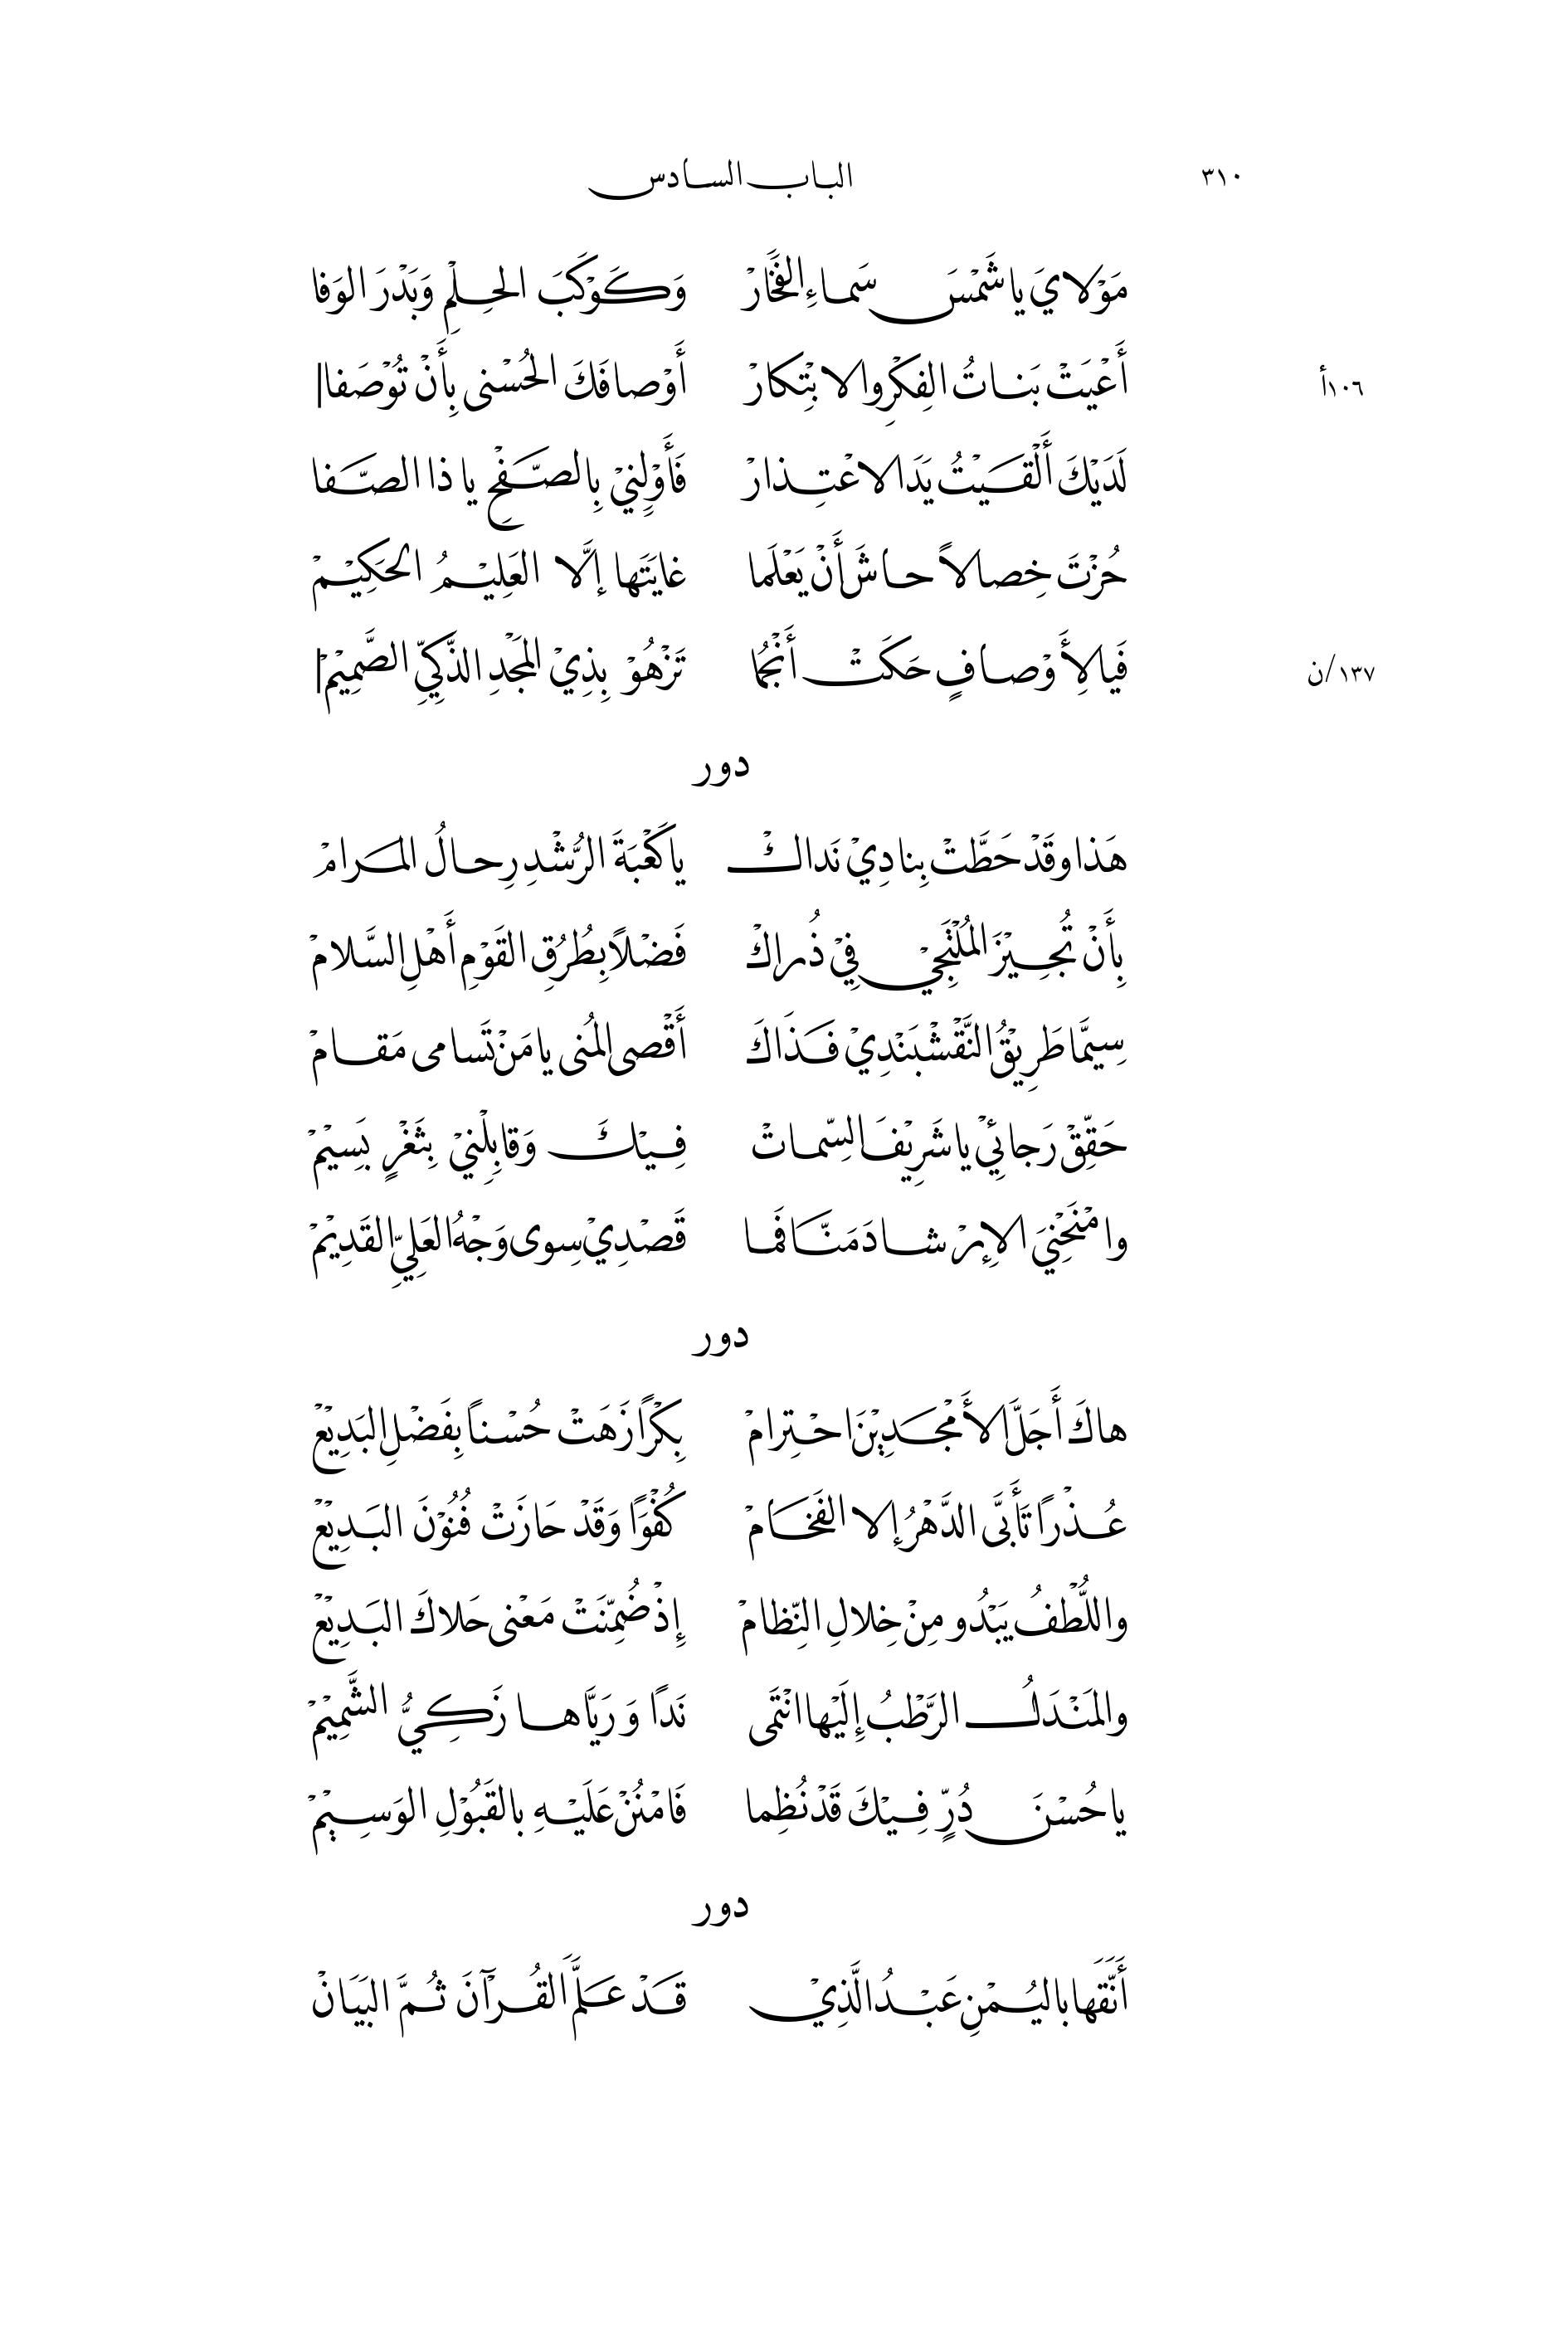 ٣١٠ الباب السادس
مَوْلايَ يا شَمْسَ سَماءِ الفَخَّارْ وَكَوْكَبَ الحِلْمِ وَبَدْرَ الوَفا
١٠٦أ أَعْيَتْ بَناتُ الفِكْرِ والابْتِكارْ أَوْصافَكَ الحُسْنى بِأَنْ تُوْصَفا|
لَدَيْكَ أَلْقَيْتُ يَدَ الاعْتِذارْ فَأَوْلِنِيْ بِالصَّفْحِ يا ذا الصَّفا
حُزْتَ خِصالاً حاشَ أَنْ يَعْلَما غايَتَها إلَّا العَلِيْمُ الحَكِيْمْ
١٣٧/ن فَيا لِأَوْصافٍ حَكَتْ أَنْجُما تَزْهُوْ بِذِيْ المَجْدِ الذَّكِيِّ الصَّمِيْمْ|
دور
هَذا وقَدْ حَطَّتْ بِنادِيْ نَداكْ يا كَعْبَةَ الرُّشْدِ رِحالُ المَرامْ
بِأَنْ تُجِيْزَ المُلْتَجِيْ فِيْ ذُراكْ فَضْلاً بِطُرُقِ القَوْمِ أَهْلِ السَّلامْ
سِيمَّا طَرِيْقُ النَّقْشْبَنْدِيْ فَذَاكَ أَقْصى المُنى يا مَنْ تَسامى مَقامْ
حَقِّقْ رَجائِيْ يا شَرِيْفَ السِّماتْ فِيْكَ وَقابِلْنِيْ بِثَغْرٍ بَسِيْمْ
وامْنَحْنِيَ الاِرْشادَ مَنَّا فَما قَصْدِيْ سِوى وَجْهُ العَلِيِّ القَدِيْمْ
دور
هاكَ أَجَلَّ الأَمْجَدِيْنَ احْتِرامْ بِكْرًا زَهَتْ حُسْناً بِفَضْلِ البَدِيْعْ
عُذْرًا تَأَبَّى الدَّهْرُ إلا الفَخَامْ كُفْوًا وَقَدْ حَازَتْ فُنُوْنَ البَدِيْعْ
واللُّطْفُ يَبْدُو مِنْ خِلالِ النِّظامْ إِذْ ضُمِّنَتْ مَعْنى حَلاكَ البَدِيْعْ
والمَنْدَلُ الرَّطْبُ إِلَيْها انْتَمَى نَدًا وَرَيَّاها زَكِيُّ الشَّمِيْمْ
يا حُسْنَ دُرٍّ فِيْكَ قَدْ نُظِما فَامْنُنْ عَلَيْهِ بالقَبُوْلِ الوَسِيْمْ
دور
أَنَّقَها باليُمْنِ عَبْدُ الَّذِيْ قَدْ عَلَّمَ القُرْآنَ ثُمَّ البَيَانْ